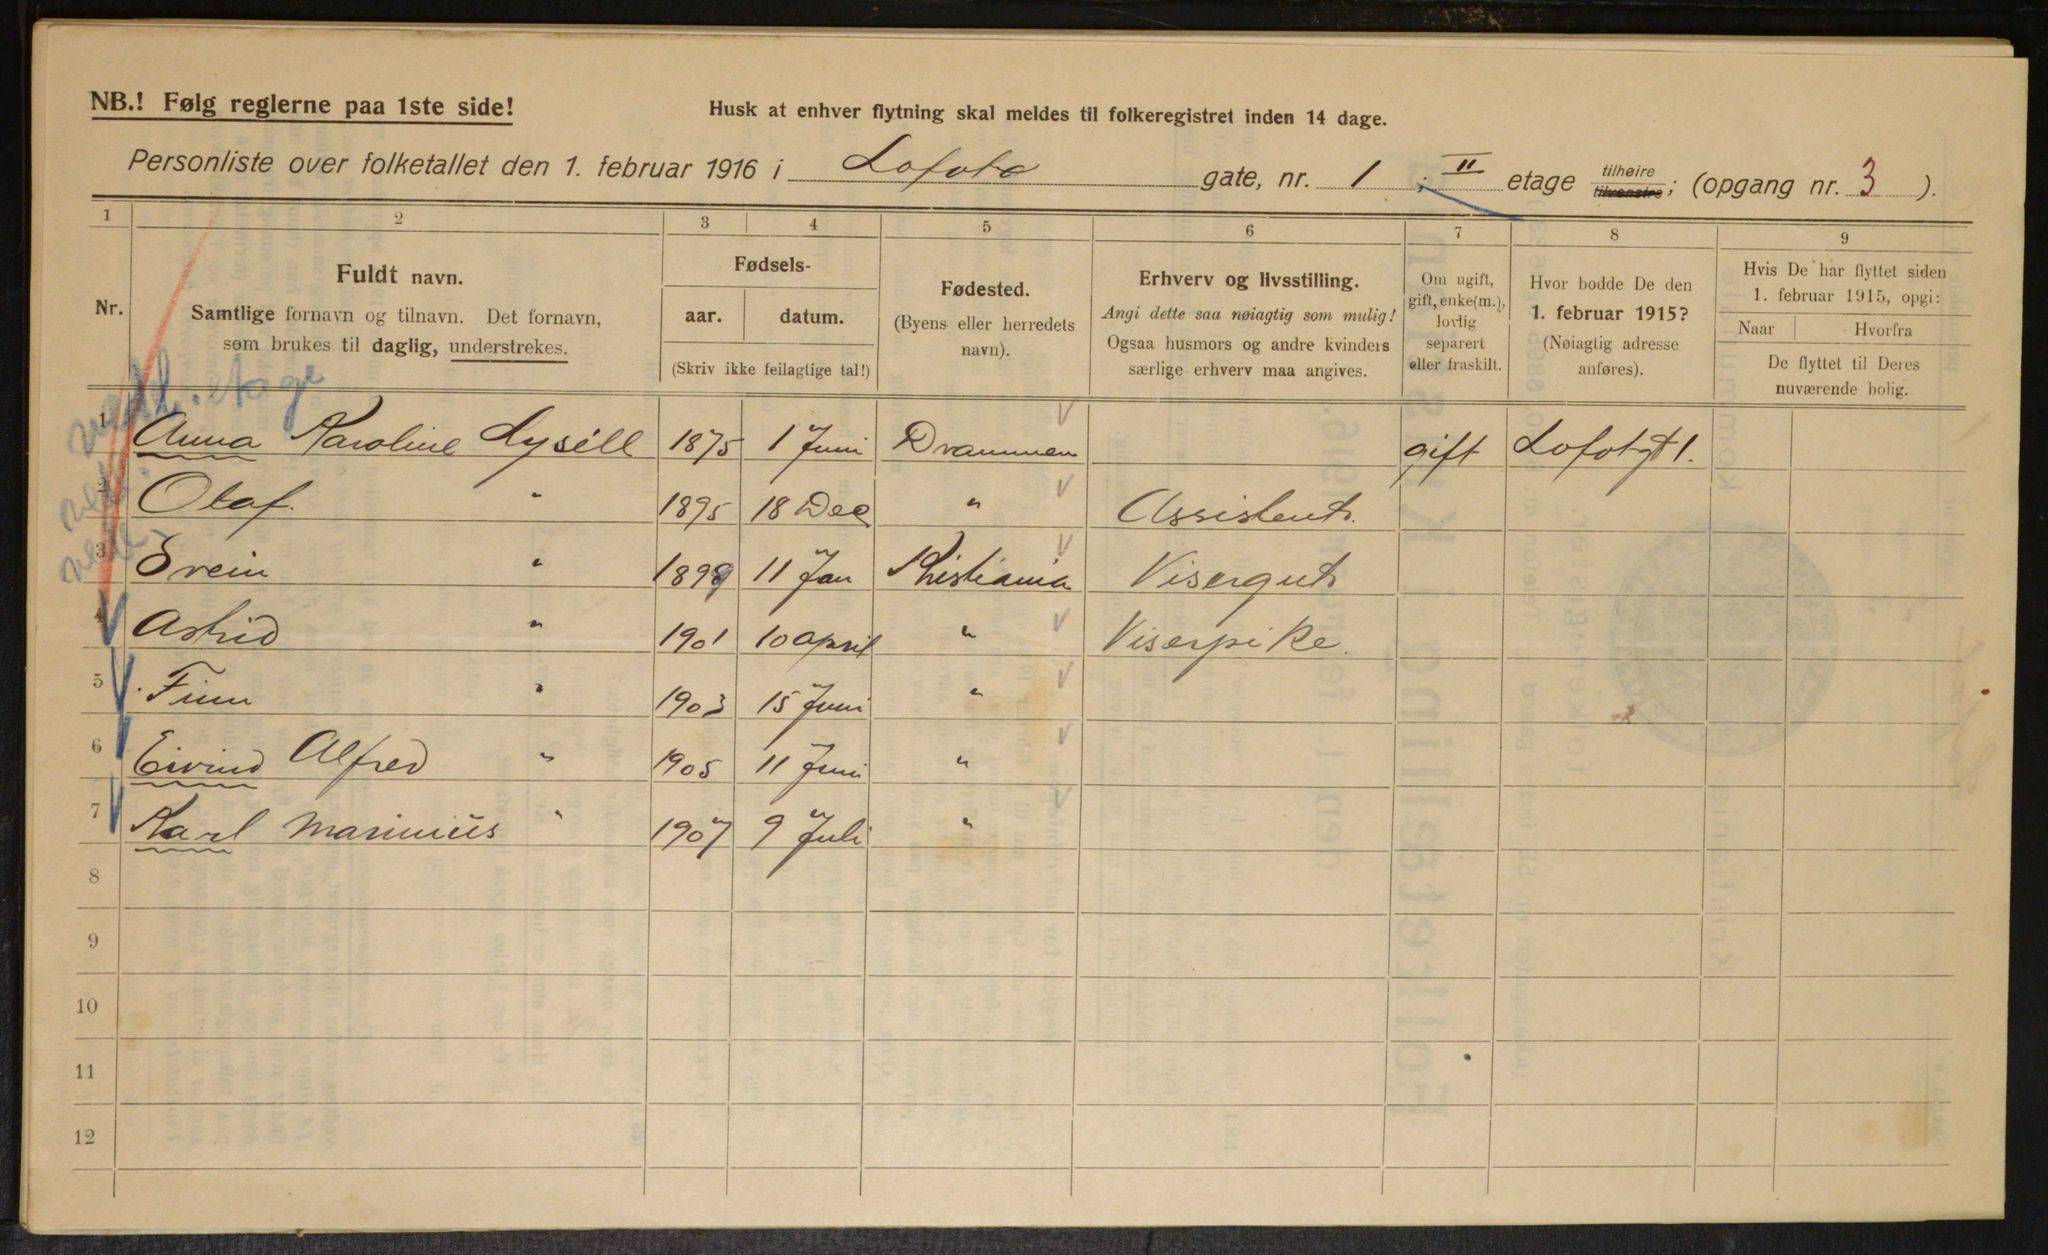 NB.! Følg reglerne paa 1ste side!
Husk at enhver flytning skal meldes til folkeregistret inden 14 dage.
Personliste over folketallet den 1. februar 1916 i Lofoto gate, nr. 1 ; II etage tilhøire tilvenstre; (opgang nr. 3 ).
1 2 3 4 5 6 7 8 9
Nr.
Fuldt navn.
Samtlige fornavn og tilnavn. Det fornavn,
som brukes til daglig, understrekes.
Fødsels-
aar. datum.
(Skriv ikke feilagtige tal!)
Fødested.
(Byens eller herredets
navn).
Erhverv og livsstilling.
Angi dette saa nøiagtig som mulig!
Ogsaa husmors og andre kvinders
særlige erhverv maa angives.
Om ugift,
gift, enke(m.),
lovlig
separert
eller fraskilt.
Hvor bodde De den
1. februar 1915?
(Nøiagtig adresse
anføres).
Hvis De har flyttet siden
1. februar 1915, opgi:
Naar Hvorfra
De flyttet til Deres
nuværende bolig.
etage
1 Anna Karoline Lysell 1875 1 Juni Drammen gift Lofotgt 1.
2 Olaf. " 1895 18 Dec " Assistent.
3 Svein " 1899 11 Jan Kristiania Visergut
4 Astrid " 1901 10 april " Viserpike.
5 Finn " 1903 15 Juni "
6 Eivind Alfred " 1905 11 Juni "
7 Karl Marinius " 1907 9 Juli "
8
9
10
11
12